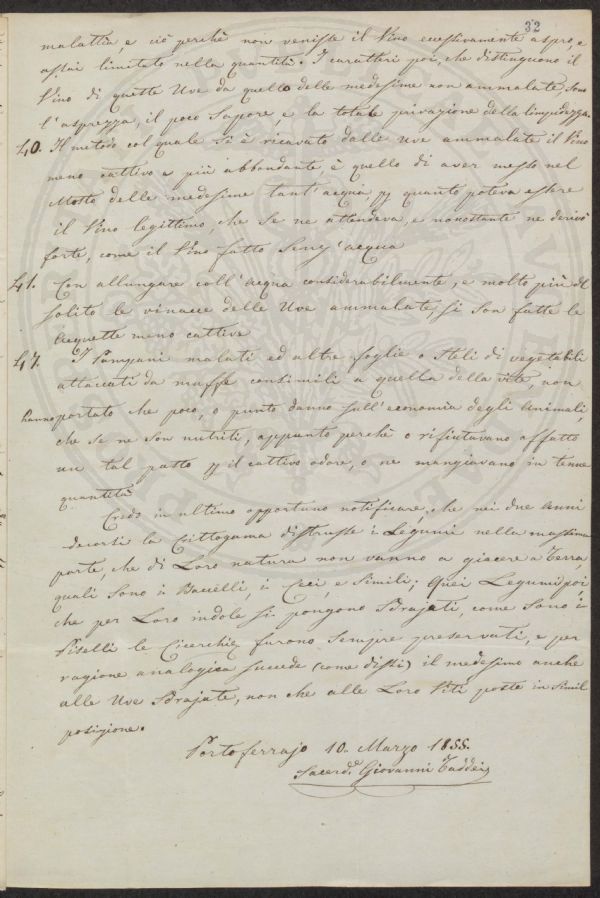 32
malattia, e ciò perchè non venisse il Vino eccessivamente aspro, e
assai limitato nella quantità. I caratteri poi, che distinguono il
Vino di queste Uve da quello delle medesime non ammalate sono
l'asprezza, il poco Sapore, e la totale privazione della limpidezza.
40. Il metodo col quale si è ricavato dalle uve ammalate il Vino
meno cattivo e più abbondante, è quello di aver messo nel
Mosto delle medesime tant'acqua p quanto poteva essere
il Vino legittimo, che se ne attendeva, e nonostante ne derivò
forte, come il Vino fatto senz'acqua
41. Con allungare coll'acqua considerabilmente, e molto più del
solito le vinacce delle Uve ammalate, si son fatte le
Acquette meno cattive
47. I Pampani malati ed altre foglie o Steli di vegetabili
attaccati da muffe consimili a quella della vite, non
hanno portato che poco, o punto danno sull'economia degli Animali,
che se ne son nutriti, appunto perchè o rifiutavano affatto
un tal pasto p il cattivo odore, o ne mangiavano in tenue
quantità
Credo in ultimo opportuno notificare, che nei due Anni
decorsi la Crittogama distrusse i Legumi nella massima
parte, che di Loro natura non vanno a giacere a Terra,
quali sono i Baccelli, i Ceci, e Simili; Quei Legumi poi,
che per Loro indole si pongono Sdrajati, come sono i
Piselli le Cicerchie furono sempre preservati, e per
ragione analogica succede (come dissi) il medesimo anche
alle Uve Sdrajate, non che alle Loro Viti poste in simil
posizione.
Portoferrajo 10. Marzo 1855.
Sacerd.e Giovanni Taddei